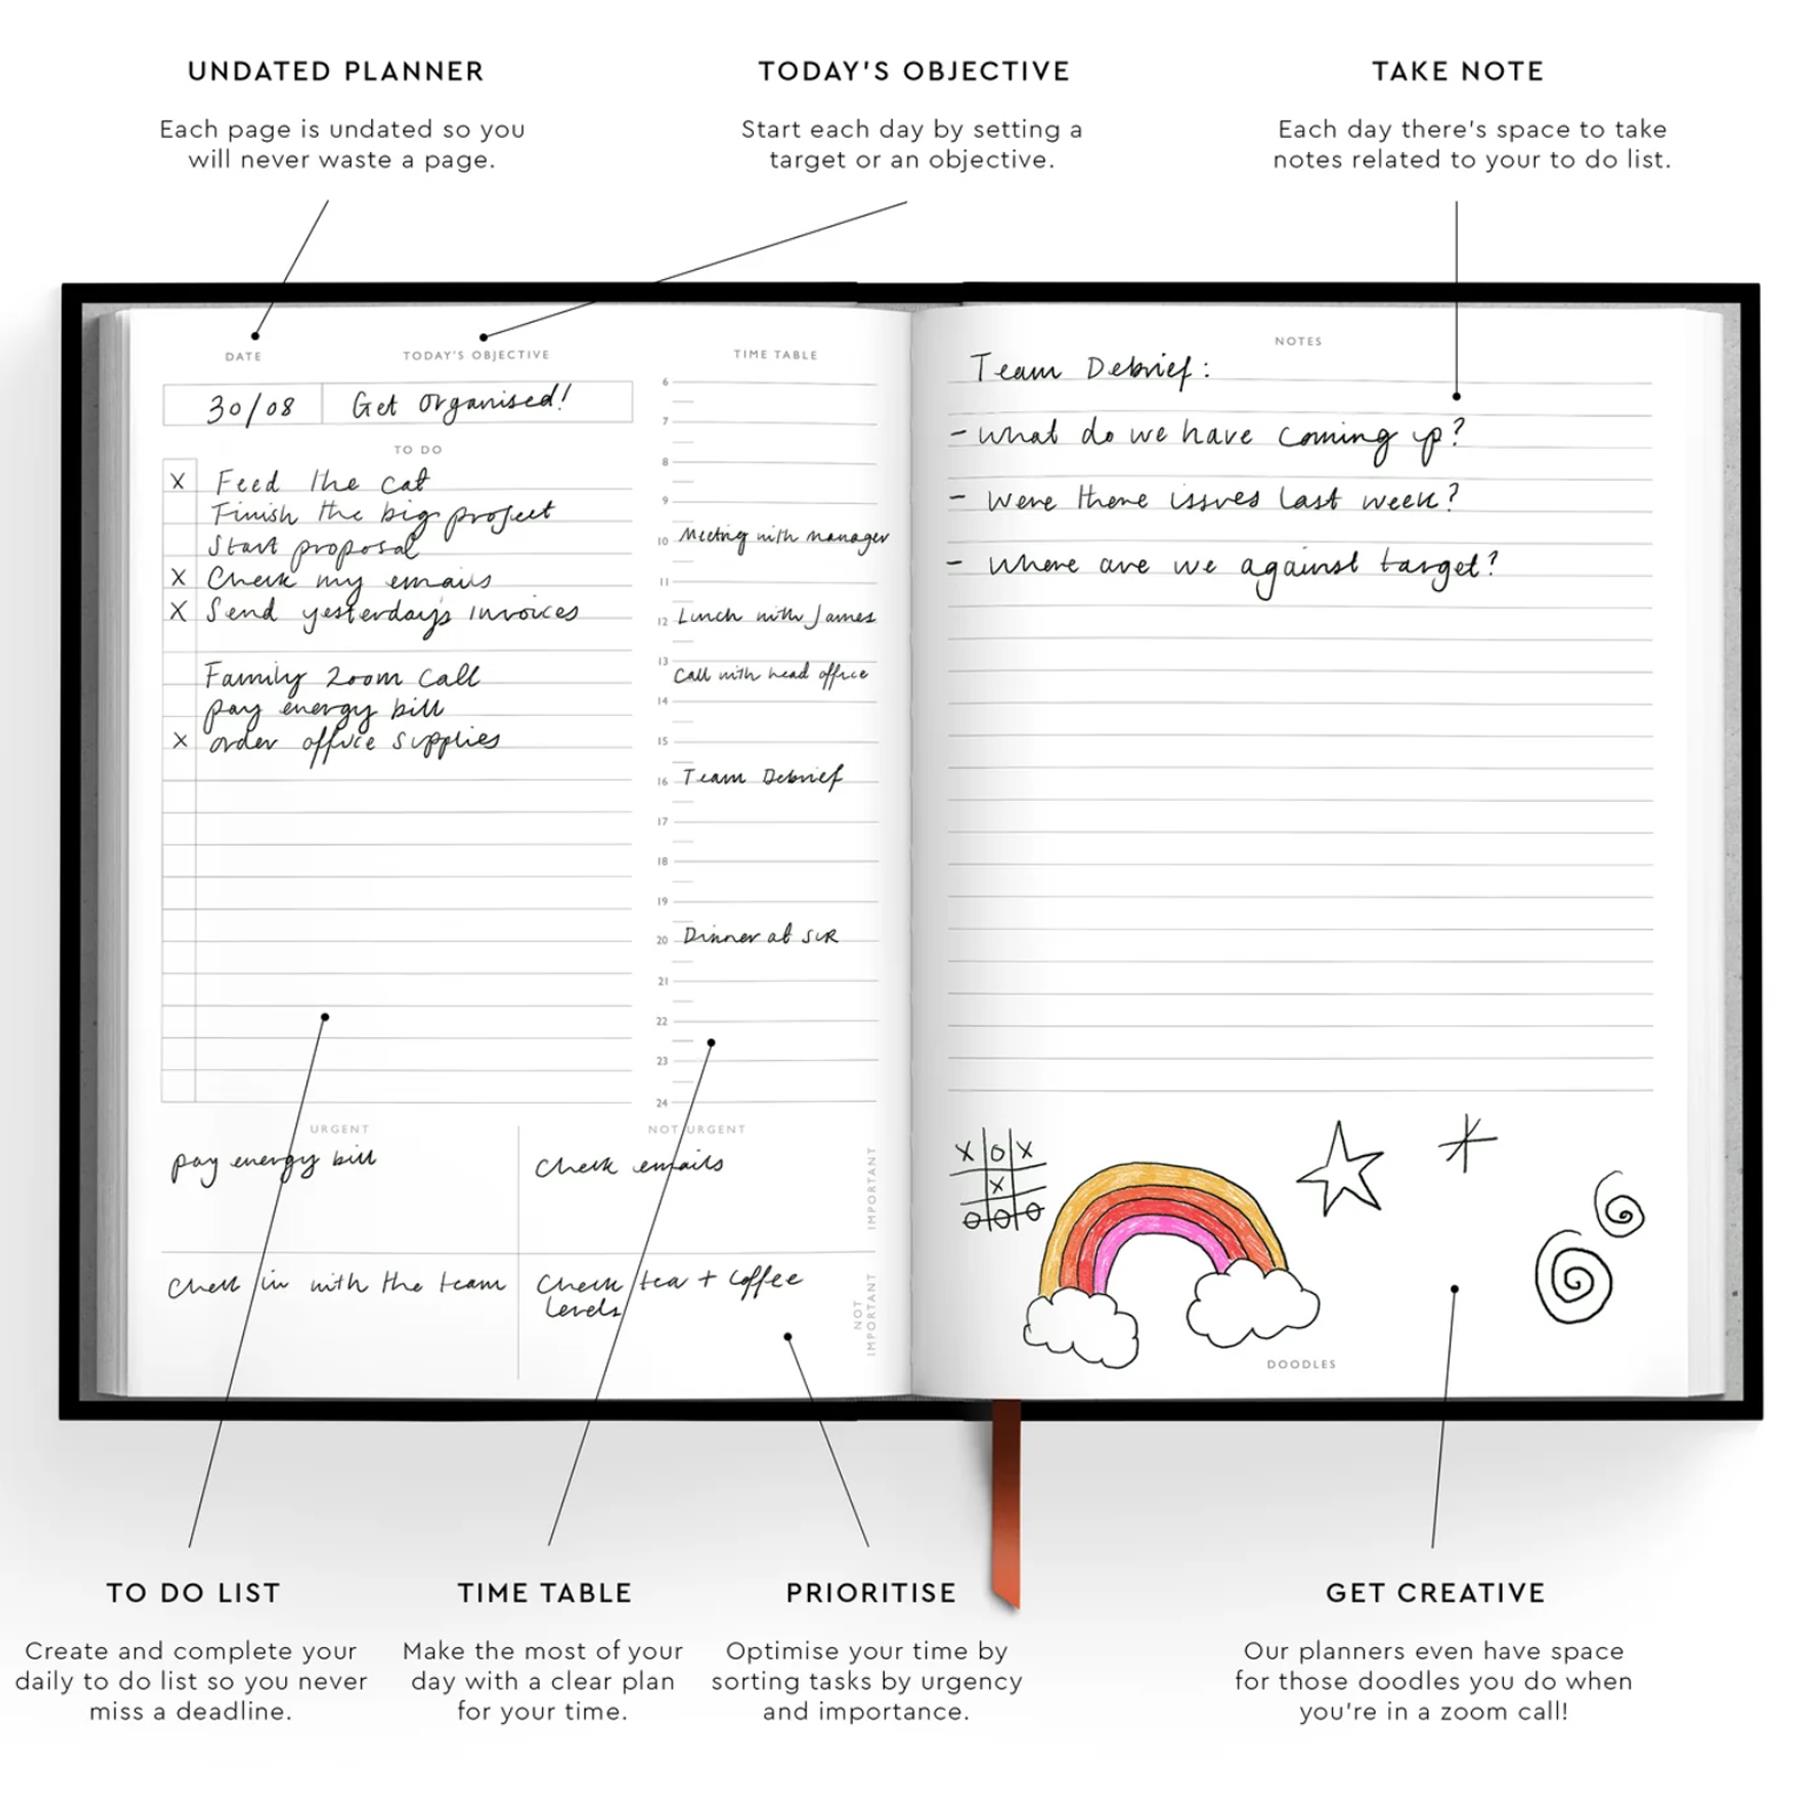 UNDATED PLANNER
Each page is undated so you
will never waste a page.
TODAY'S OBJECTIVE
Start each day by setting a
target or an objective.
TAKE NOTE
Each day there's space to take
notes related to your to do list.
DATE
TODAY'S OBJECTIVE
30/08
Get organised!
TO DO
X Feed the cat
Finish the big project
Start proposal
X Check my emails
X Send yesterday's invoices
Family zoom call
pay energy bill
X order office supplies
TIME TABLE
6
7
8
9
10 Meeting with manager
11
12 Lunch with James
13
Call with head office
14
15
16 Team Debrief
17
18
19
20 Dinner at SUR
21
22
23
24
URGENT
NOT URGENT
pay energy bill
Check emails
IMPORTANT
Check in with the team
Check tea + coffee
levels
NOT
IMPORTANT
NOTES
Team Debrief:
- What do we have coming up?
- Were there issues last week?
- Where are we against target?
X O X
X
O O O
DOODLES
TO DO LIST
Create and complete your
daily to do list so you never
miss a deadline.
TIME TABLE
Make the most of your
day with a clear plan
for your time.
PRIORITISE
Optimise your time by
sorting tasks by urgency
and importance.
GET CREATIVE
Our planners even have space
for those doodles you do when
you're in a zoom call!